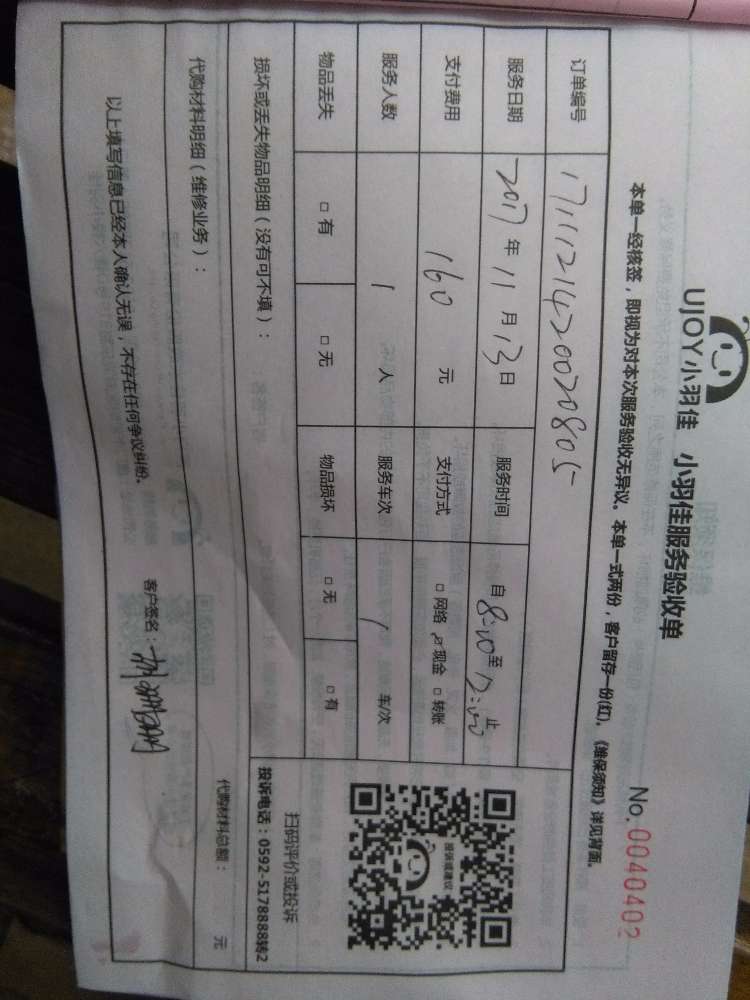 UJOY小羽佳 小羽佳服务验收单
No.0040402
本单一经核签，即视为对本次服务验收无异议。本单一式两份，客户留存一份(红)。《维保须知》详见背面。
订单编号 171112142002080５
服务日期 2017年11月13日 服务时间 自8:00至12:00止
支付费用 160元 支付方式 □网络 ☑现金 □转账
服务人数 1人 服务车次 1车/次
物品丢失 □有 □无 物品损坏 □无 □有
损坏或丢失物品明细（没有可不填）：
投保或建议
扫码评价或投诉
投诉电话：0592-5178888转2
代购材料明细（维修业务）： 代购材料总额： 元
以上填写信息已经本人确认无误，不存在任何争议纠纷。
客户签名：